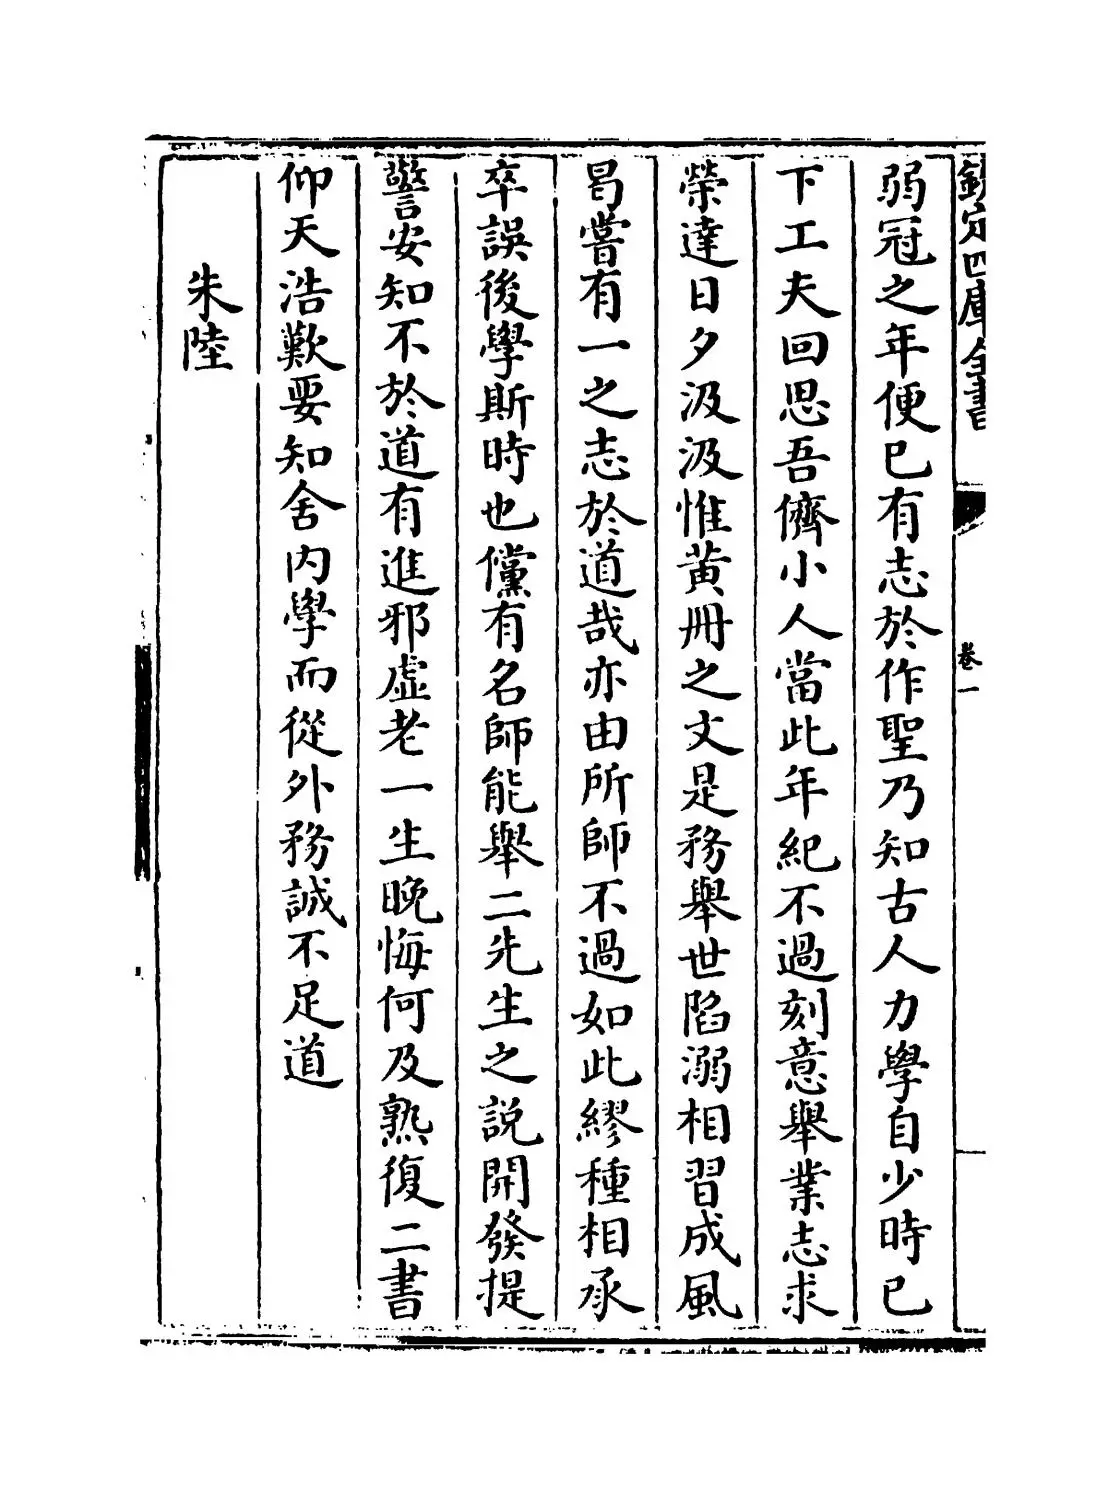 欽定四庫全書
卷一
弱冠之年便已有志於作聖乃知古人力學自少時已
下工夫回思吾儕小人當此年紀不過刻意舉業志求
榮達日夕汲汲惟黃冊之文是務舉世陷溺相習成風
曷嘗有一之志於道哉亦由所師不過如此繆種相承
卒誤後學斯時也儻有名師能舉二先生之說開發提
警安知不於道有進邪虛老一生晚悔何及熟復二書
仰天浩歎要知舍内學而從外務誠不足道
朱陸